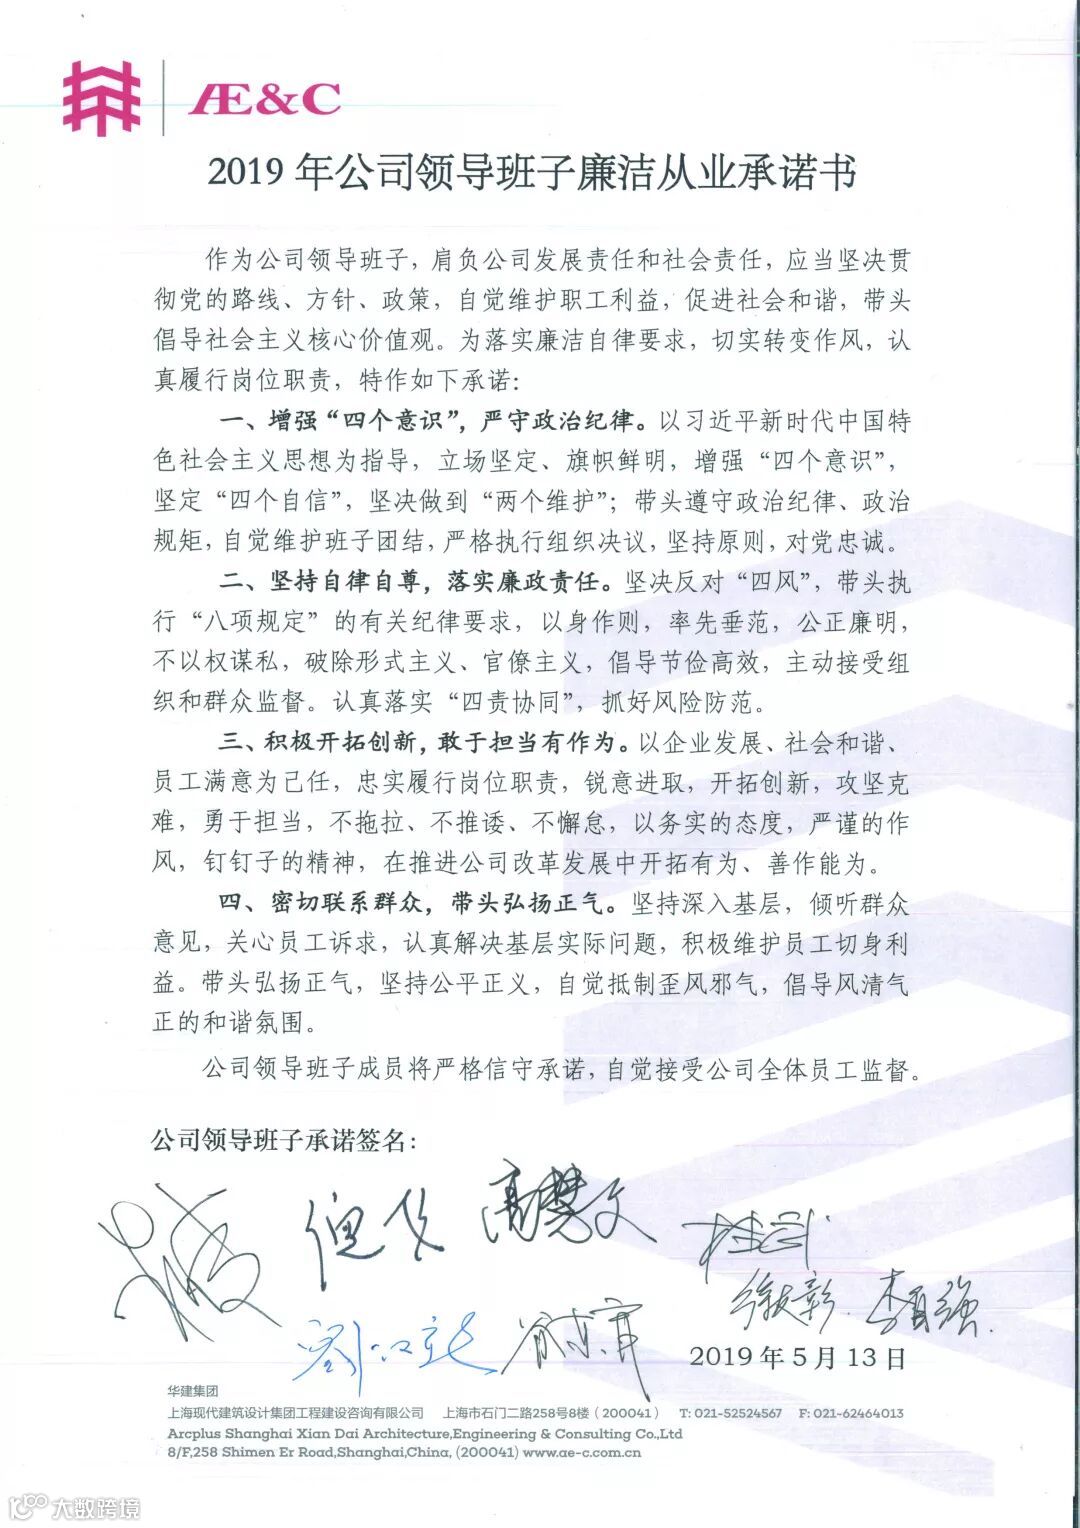 Æ&C
2019 年公司领导班子廉洁从业承诺书
作为公司领导班子，肩负公司发展责任和社会责任，应当坚决贯
彻党的路线、方针、政策，自觉维护职工利益，促进社会和谐，带头
倡导社会主义核心价值观。为落实廉洁自律要求，切实转变作风，认
真履行岗位职责，特作如下承诺：
一、增强“四个意识”，严守政治纪律。以习近平新时代中国特
色社会主义思想为指导，立场坚定、旗帜鲜明，增强“四个意识”，
坚定“四个自信”，坚决做到“两个维护”；带头遵守政治纪律、政治
规矩，自觉维护班子团结，严格执行组织决议，坚持原则，对党忠诚。
二、坚持自律自尊，落实廉政责任。坚决反对“四风”，带头执
行“八项规定”的有关纪律要求，以身作则，率先垂范，公正廉明，
不以权谋私，破除形式主义、官僚主义，倡导节俭高效，主动接受组
织和群众监督。认真落实“四责协同”，抓好风险防范。
三、积极开拓创新，敢于担当有作为。以企业发展、社会和谐、
员工满意为己任，忠实履行岗位职责，锐意进取，开拓创新，攻坚克
难，勇于担当，不拖拉、不推诿、不懈怠，以务实的态度，严谨的作
风，钉钉子的精神，在推进公司改革发展中开拓有为、善作能为。
四、密切联系群众，带头弘扬正气。坚持深入基层，倾听群众
意见，关心员工诉求，认真解决基层实际问题，积极维护员工切身利
益。带头弘扬正气，坚持公平正义，自觉抵制歪风邪气，倡导风清气
正的和谐氛围。
公司领导班子成员将严格信守承诺，自觉接受公司全体员工监督。
公司领导班子承诺签名：
高慧文
2019 年 5 月 13 日
华建集团
上海现代建筑设计集团工程建设咨询有限公司 上海市石门二路258号8楼（200041） T: 021-52524567 F: 021-62464013
Arcplus Shanghai Xian Dai Architecture,Engineering & Consulting Co.,Ltd
8/F,258 Shimen Er Road,Shanghai,China, (200041) www.ae-c.com.cn
大数跨境